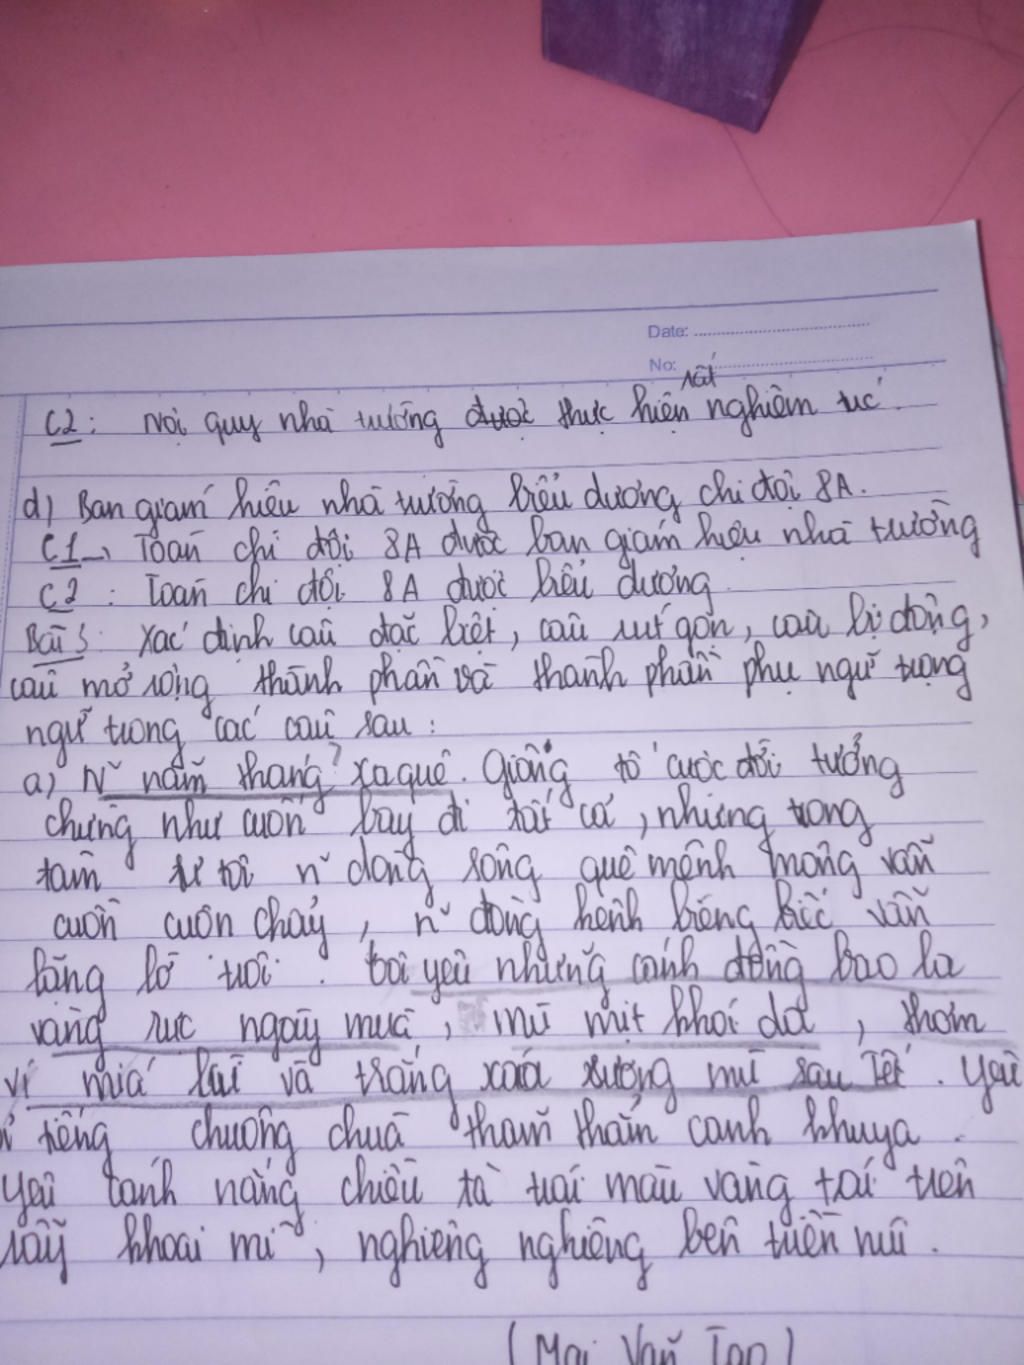 Date:
No:
C2: Nội quy nhà trường được thực hiện rất nghiêm túc.
d) Ban giám hiệu nhà trường biểu dương chi đội 8A.
C1→ Toàn chi đội 8A được ban giám hiệu nhà trường
C2: Toàn chi đội 8A được biểu dương
Bài 3: Xác định câu đặc biệt, câu rút gọn, câu bị động,
câu mở rộng thành phần và thành phần phụ ngữ trạng
ngữ trong các câu sau:
a) N~ năm tháng xa quê. Giông tố cuộc đời tưởng
chừng như cuốn bay đi tất cả, nhưng trong
tâm tư tôi n~ dòng sông quê mênh mông vẫn
cuồn cuộn chảy, n~ dòng kênh biêng biếc vẫn
lặng lờ trôi. Tôi yêu những cánh đồng bao la
vàng rực ngày mùa, mù mịt khói dạ, thơm
vị mía lùi và trắng xóa sương mù sau Tết. Yêu
tiếng chuông chùa thăm thẳm canh khuya.
Yêu ánh nắng chiều tà trải màu vàng tái trên
rẫy khoai mì, nghiêng nghiêng bên triền núi.
(Mai Văn Tạo)